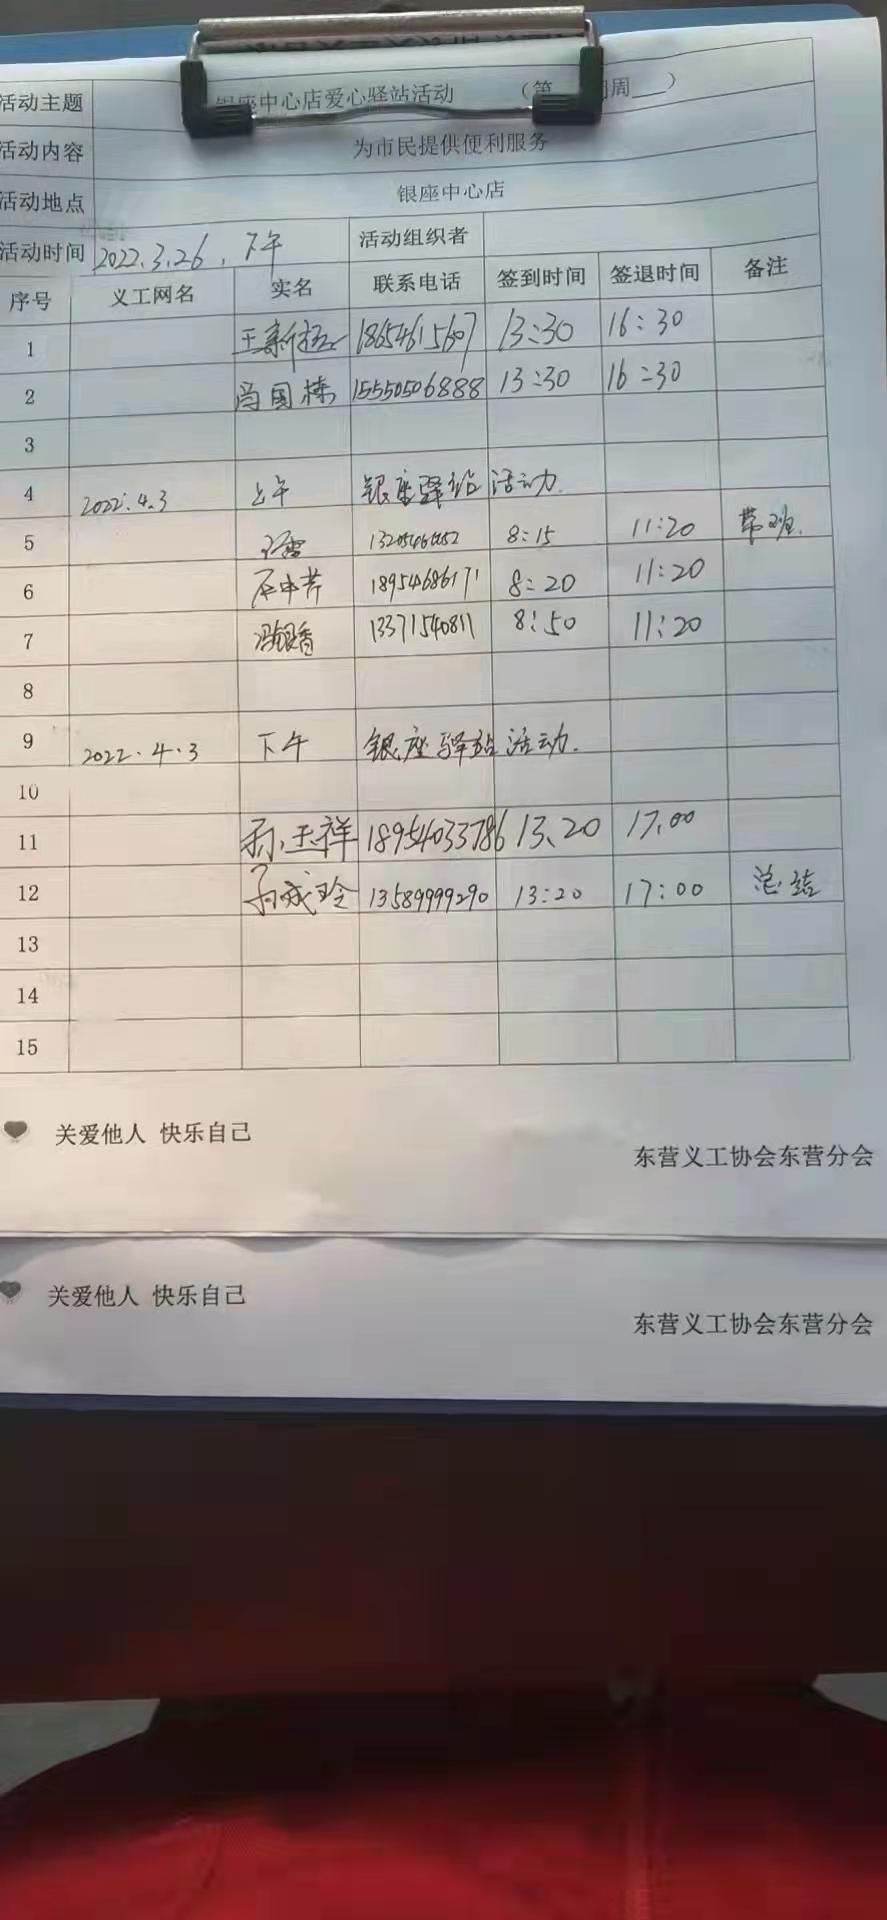 活动主题 银座中心店爱心驿站活动 （第 周周__）
活动内容 为市民提供便利服务
活动地点 银座中心店
活动时间 2022.3.26. 下午 活动组织者
序号 义工网名 实名 联系电话 签到时间 签退时间 备注
1 王新 18654615607 13:30 16:30
2 尚国栋 15550506888 13:30 16:30
3
4 2022.4.3 上午 银座驿站活动.
5 8:15 11:20 带班.
6 18954686171 8:20 11:20
7 冯银香 13371540811 8:50 11:20
8
9 2022.4.3 下午 银座驿站活动.
10
11 孙玉祥 18954033786 13、20 17.00
12 孙成玲 13589999290 13:20 17:00 总结
13
14
15
关爱他人 快乐自己
东营义工协会东营分会
关爱他人 快乐自己
东营义工协会东营分会